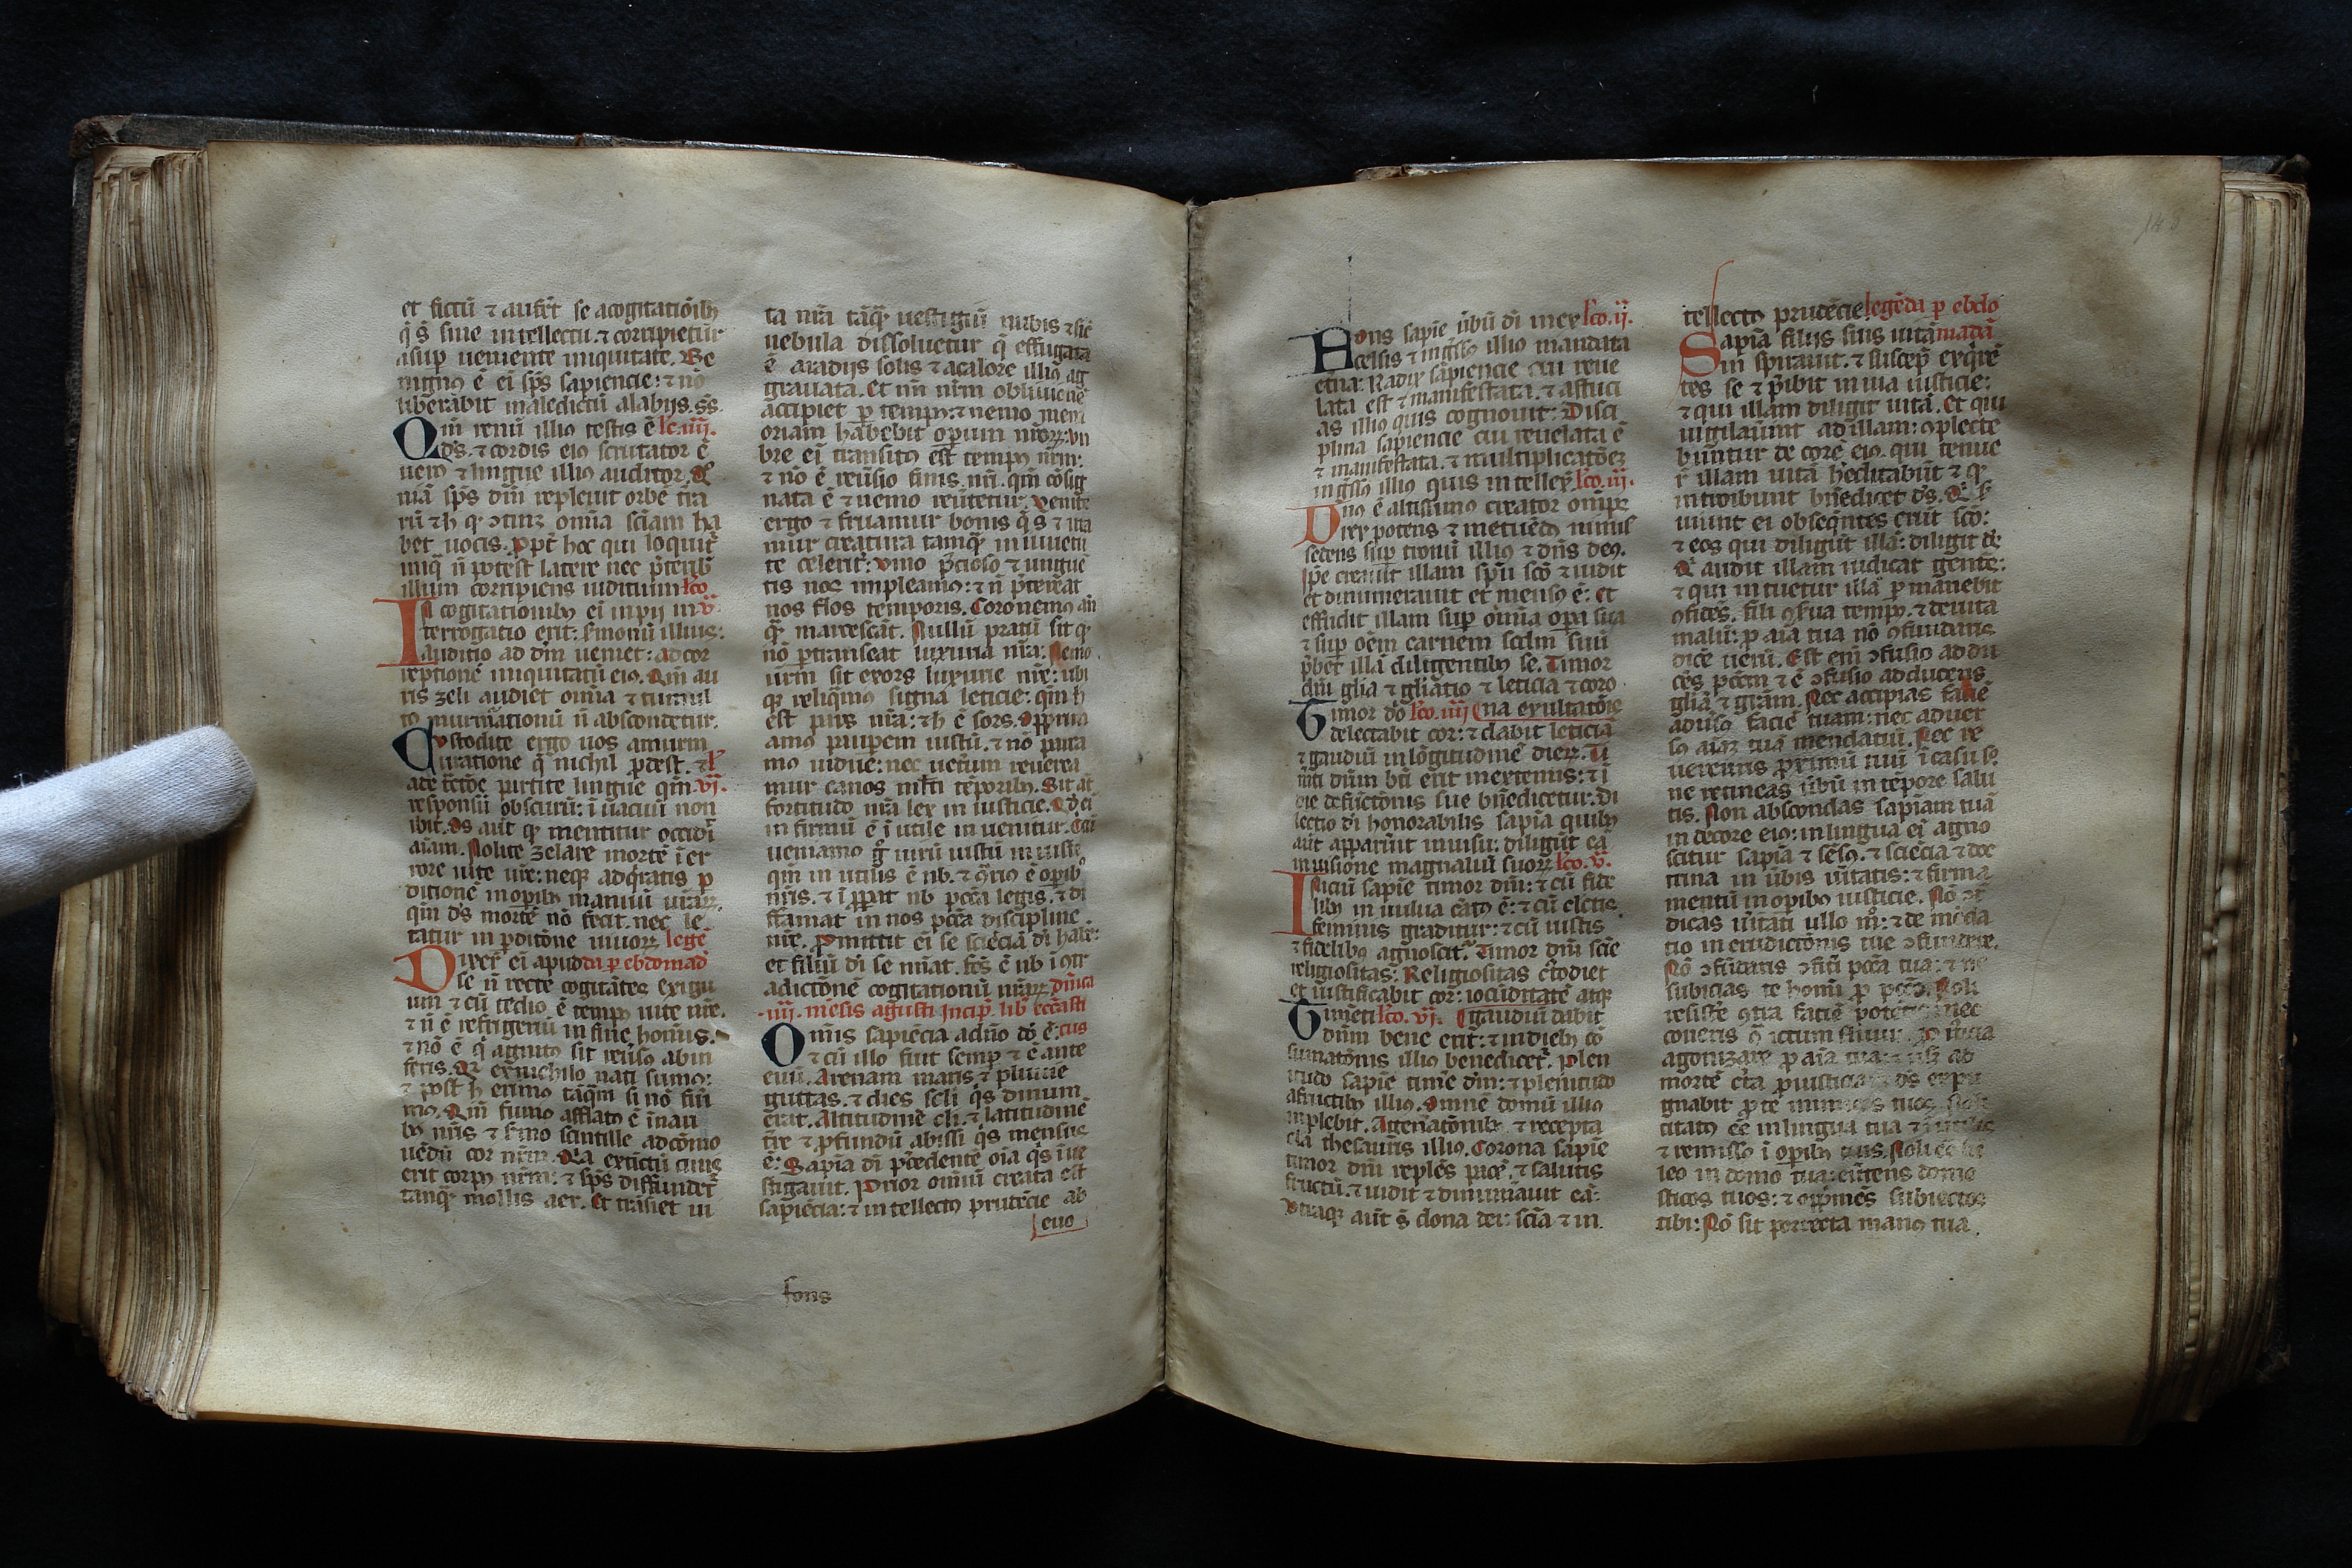 et fictū ⁊ aufēt se acogitatiōibꝫ
q̄ s̄ sine intellectu. ⁊ corripietur
asup̱ ueniente iniquitate. Be
nignꝰ ē ei̅ sp̄s sapiencie: ⁊ nō
liberabit maledictū alabijs.
Qm̄ renū illiꝰ testis ē lc. iiij.
ds̄. ⁊ cordis eiꝰ scrutator ē
uerꝰ ⁊ lingue illiꝰ auditor.
niā sp̄s dn̄i repleuit orbē tr̄a
omīa sc̄iam ha
bet uocis. ꝓpt̄ hoc qui loquit̄
iniq̄ n̄ potest latere nec
illum corripiens iudicium lc̄o
In cogitationibꝫ ei̅ inpij in v.
terrogatio erit: s̄monū illius:
auditio ad dn̄i ueniet: ad cor
reptionē iniquitatū eiꝰ. Qm̄ au
ris zeli audiet om̄ia ⁊ tumul
tꝰ murm̄ationū n̄ abscondetur.
Custodite ergo uos amurm
uratione q̄ nichil
parcite lingue qm̄ .vi.
responsū obscurū: ī uacuū non
ibit. os aūt qꝫ mentitur occidit̄
aīam. Nolite zelare mortē ī er
rore uite ur̄e: neqꝫ adq̄ratis ꝑ
ditionē in opibꝫ manuū ur̄aꝝ.
qm̄ ds̄ mortē nō fecit. nec le
tatur in ꝑditōne uiuoꝝ legē
Dixer̄ ei̅ apud da ꝑ ebdomad̄
se n̄ recte cogitātes exigu
um ⁊ cū tedio ē tempꝰ uite nr̄e.
⁊ n̄ ē refrigeriū in fine homīs.
⁊ nō ē q̄ agnitꝰ sit reūsꝰ abin
feris. Qꝛ exnichilo nati sumꝰ:
⁊ post h̄ erimꝰ tāq̄m si nō fūi
mꝰ. Qm̄ fumꝰ afflatꝰ ē ī nari
bꝫ nr̄is ⁊ s̄mo scintille ad cōmo
uēdū cor nr̄m. Qa extīctū cinis
erit corpꝰ nr̄m: ⁊ sp̄s diffundet̄
tanq̄ mollis aer. Et trāsiet ui
ta nr̄a tāq̄ uestigiū nubis ⁊ sic̄
nebula dissoluetur q̄ effugata
ē aradijs solis ⁊ acalore illiꝰ ag
grauata. Et nm̄ nr̄m obliuionē
accipiet ꝑ tempꝰ: ⁊ nemo mem
oriam habebit opum nr̄oꝝ: vm
bre ei̅ transitꝰ est tempꝰ nr̄m:
⁊ nō ē reūsio finis nr̄i. qm̄ cōsig
nata ē ⁊ nemo reūtetur. Venite
ergo ⁊ fruamur bonis q̄ s̄ ⁊ uta
mur creatura tamq̄ in iuuentu
te celerit̄: vino p̄cioso ⁊ ungue
tis nos impleamꝰ: ⁊ n̄ p̄tereat
nos flos temporis. Coronemꝰ
q̄ marcescāt. Nullū pratū sit qꝫ
nō ꝑtranseat luxuria nr̄a: Nemo
ur̄m sit exors luxurie nr̄e: ubi
qꝫ relinq̄mꝰ signa leticie: qm̄ h̄
est pars nr̄a: ⁊ h̄ ē sors. Opp̄ma
amꝰ pauperem iustū. ⁊ nō parca
mꝰ uidue: nec uet̄um reuerea
mur canos ml̄ti tēporibꝫ. Sit āt
fortitudo nr̄a lex in iusticie. Qd̄ ei̅
in firmū ē ī utile in uenitur. Cir
ueniamꝰ g̊ uirū iustū
qm̄ in utilis ē nb̄.
legis. ⁊ di
ffamat in nos pcc̄a discipline
nr̄e. Promittit ei̅ se sciēciā dī habe:
et filiū dī se nīat.
adictōnē cogitationū nr̄aꝝ. Dn̄ica
.iiij. mēsis agusti Incip̄. lib̄ eccl̄asti
Omīs sapiēcia ad nō dō ē: cus
⁊ cū illo fuit semp̱ ⁊ ē ante
euū. Arenam maris ⁊ pluuie
guttas. ⁊ dies scl̄i q̄s dinum
erat. Altitudinē cl̄i. ⁊ latitudinē
tr̄e ⁊ ꝓfundū abissi q̄s mensus
ē: Sapiā dī p̄cedentē oīa q̄s īue
stigauit. Prior omniū creata est
sapiēcia: ⁊ intellectꝰ prudēcie ab
euo
fons
Fons sapiē ūbū dī in ex lc̄o. ij.
celsis ⁊ ingr̄ssꝰ illiꝰ mandata
et̄na: Radix sapiencie cui reue
lata est ⁊ manifestata. ⁊ astuci
as illiꝰ quis cognouit: Disci
plina sapiencie cui reuelata ē
⁊ manifestata. ⁊ multiplicatōēꝫ
ingr̄ssꝰ illiꝰ quis intellex̄ lc̄o. iij.
Unꝰ ē altissimꝰ creator om̄ips
rex potens ⁊ metuēdꝰ nimis
sedens sup̱ tronū illiꝰ ⁊ dn̄s deꝰ.
Ipe creauit illam sp̄u scō ⁊ uidit
et dinumerauit et mensꝰ ē: et
effudit illam sup̱ om̄ia opa sua
⁊ sup̱ oēm carnem scdm̄ suū
p̄bet illā diligentibꝫ se. Timor
dn̄i glīa ⁊ gl̄iatio ⁊ leticia ⁊ coro
Timor dō lc̄o. iiij ¶na exultatōis
delectabit cor: ⁊ dabit leticiā
⁊ gaudiū in lōgitudinē dieꝝ. Ti
mēti dn̄m bn̄ erit in extremis: ⁊ ī
die defūctōnis sue bn̄edicetur. Di
lectio dī honorabilis sapīa quibꝫ
aūt apparūit in uisu: diligūt eā
in uisione magnaliū suoꝝ lc̄o. v.
Iniciū sapiē timor dn̄i: ⁊ cū fide
libꝫ in uulua c̄atꝰ ē: ⁊ cū electis
feminis graditur: ⁊ cū iustis
⁊ fidelibꝫ agnoscit̄. Timor dn̄i scīe
religiositas: Religiositas c̄todiet
et iustificabit cor: iocūditatē atqꝫ
Timēti lc̄o. vj. ¶gaudiū dabit
dn̄m bene erit: ⁊ in diebꝫ cō
sumatōnis illiꝰ benedicet̄. Plen
itudo sapiē timē dn̄i: ⁊ plenitudo
afructibꝫ illiꝰ. Omnē domū illiꝰ
inplebit. Agen̄atōnibꝫ ⁊ recepta
cl̄a thesauris illiꝰ. Corona sapiē
timor dn̄i replēs pacē. ⁊ salutis
fructū. ⁊ uidit ⁊ dinum̄auit eā:
Vtraqꝫ aūt s̄ dona dei: scīa ⁊ in
tellectꝰ prudēcie legēda ꝑ ebdo
Sapīa filijs suis uitā madā
in spirauit. ⁊ suscep̄ exq̄rē
tes se ⁊ p̄ibit in uia iusticie:
⁊ qui illam diligit uitā. Et qui
uigilauīnt ad illam: ɔplecte
būntur de corē eiꝰ. qui tenue
r̄ illam uitā h̄editabūt ⁊ qꝫ
introibunt bn̄edicet ds̄.
uiunt ei obseq̄ntes erūt scō:
⁊ eos qui diligūt illā: diligit ds̄
Qi audit illam iudicat gentē:
⁊ qui intuetur illā ꝑmanebit
ɔfidēs. fili ɔs̄ua tempꝰ. ⁊ deuita
malū: ꝑ aīa tua nō ɔfundaris
dicē uerū. Est em̄ ɔfusio addu
cēs pcc̄m ⁊ ē ɔfusio adducens
glīā ⁊ grām. Nec accipias faciē
aduīsꝰ faciē tuam: nec aduer
sꝰ aīaꝫ tuā mendaciū. Nec re
uerearis ꝓximū tuū ī casu sꝰ
ne retineas ūbū in tēpore salu
tis. Non abscondas sapiam tuā
in decore eiꝰ: in lingua ei̅ agno
scitur sapīa ⁊ sēsꝰ. ⁊ sciēcia ⁊ doc
trina in ūbis uītatis: ⁊ firma
mentū in opibꝰ iusticie. Nō
dicas uītati ullo m̊: ⁊ de mēda
tio in erudictōnis tue ɔfundere.
Nō ɔfūdaris ɔfit̄i pcc̄a tua: ⁊ ne
subicias te homī ꝑ pccō. Noli
resistē ɔtra faciē potētis nec
coneris
agonizare ꝑ aīa tua: ⁊ usqꝫ ad
mortē c̄ta ꝑ iusticia ds̄ expu
gnabit ꝑ te inimicos tuos. Noli
citatꝰ ēē in lingua tua
⁊ remissꝰ ī opibꝫ tuis. Noli
leo in domo tua: eūtens domes
ticos tuos: ⁊ opp̄mēs subiectos
tibi: Nō sit porrecta manꝰ tua